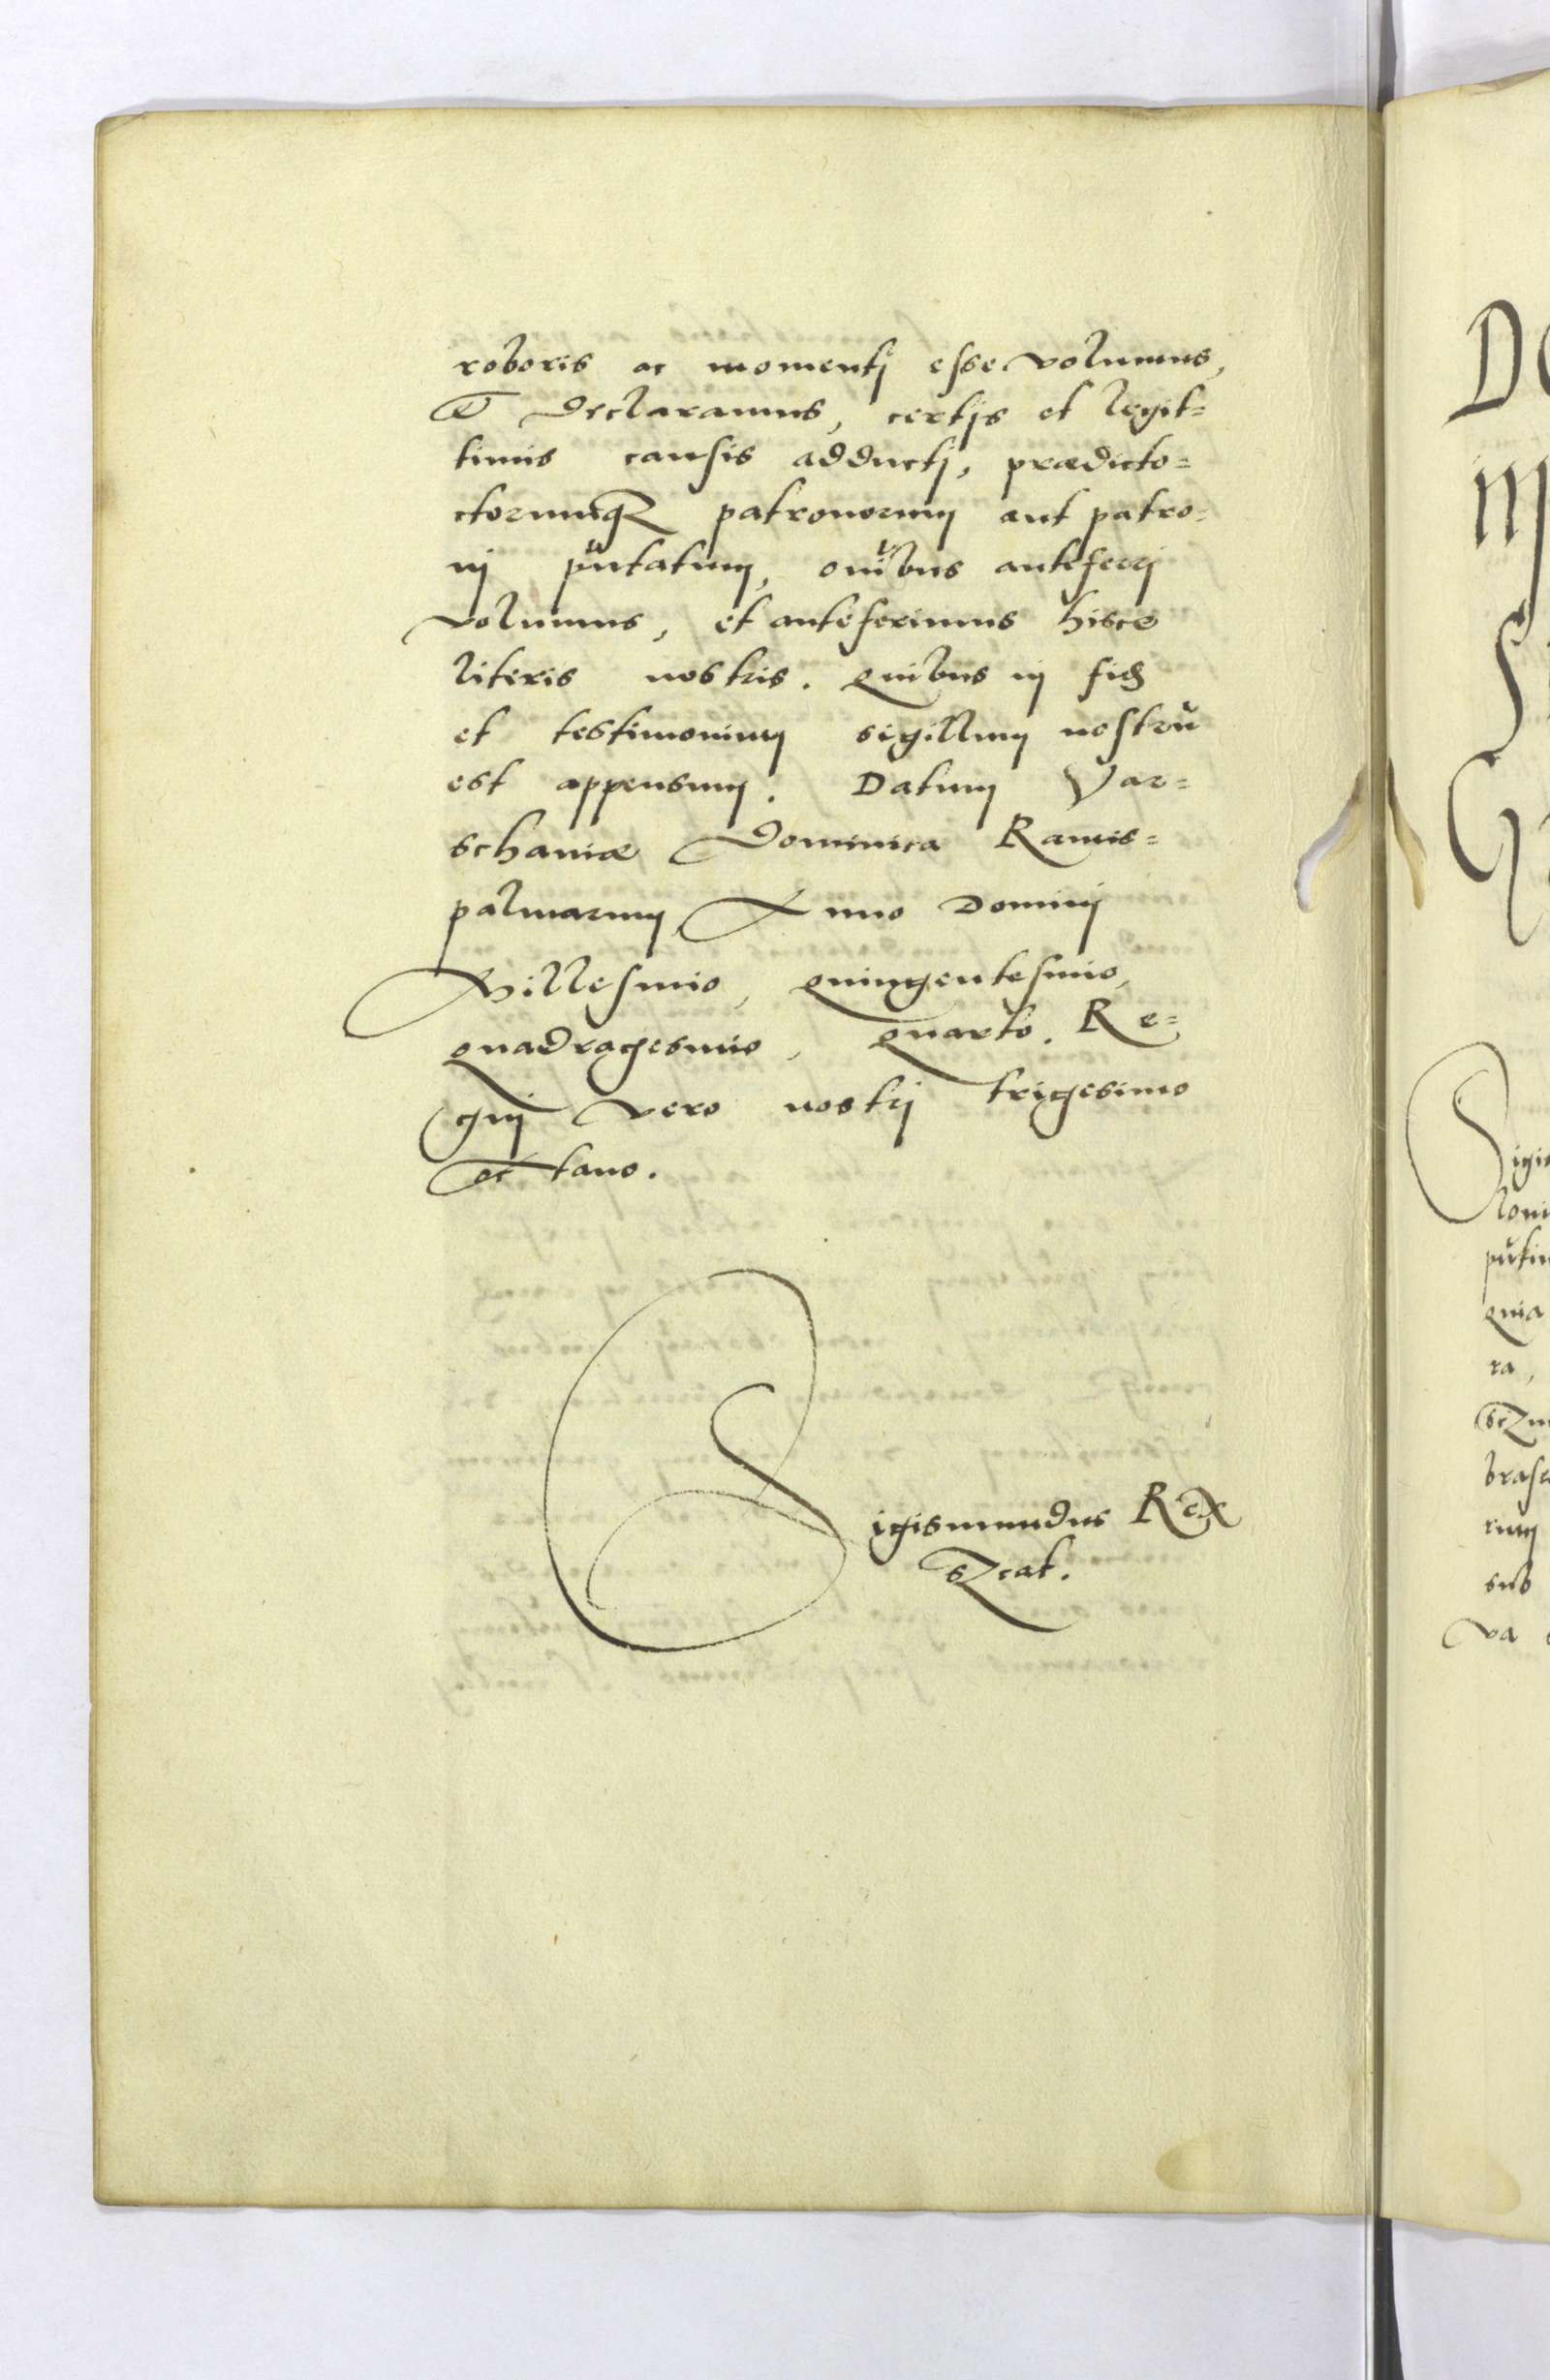 roboris ac momentj esse volumus,
Et declaramus, certjs et legit=
timis causis adductj, prædicto=
ctorumq3 patronorum aut patro=
nj pūtatum, oīibus anteferrj
volumus, et anteferimus hisce
literis nostris. quibus in fid3
et testimonium sigillum nostrū
est appensum. Datum Var=
schaviæ Dominica Ramis=
palmarum, Anno Dominj
Millesimo, quingentesimo,
quadragesimo, quarto. Re=
gnj vero nostrj trigesimo
octavo.
Sigismundus Rex
sZcat.
DO
M
S
G
Sigis
loni
pūtin
quia
ra,
scZu
brase
rum
sub
va